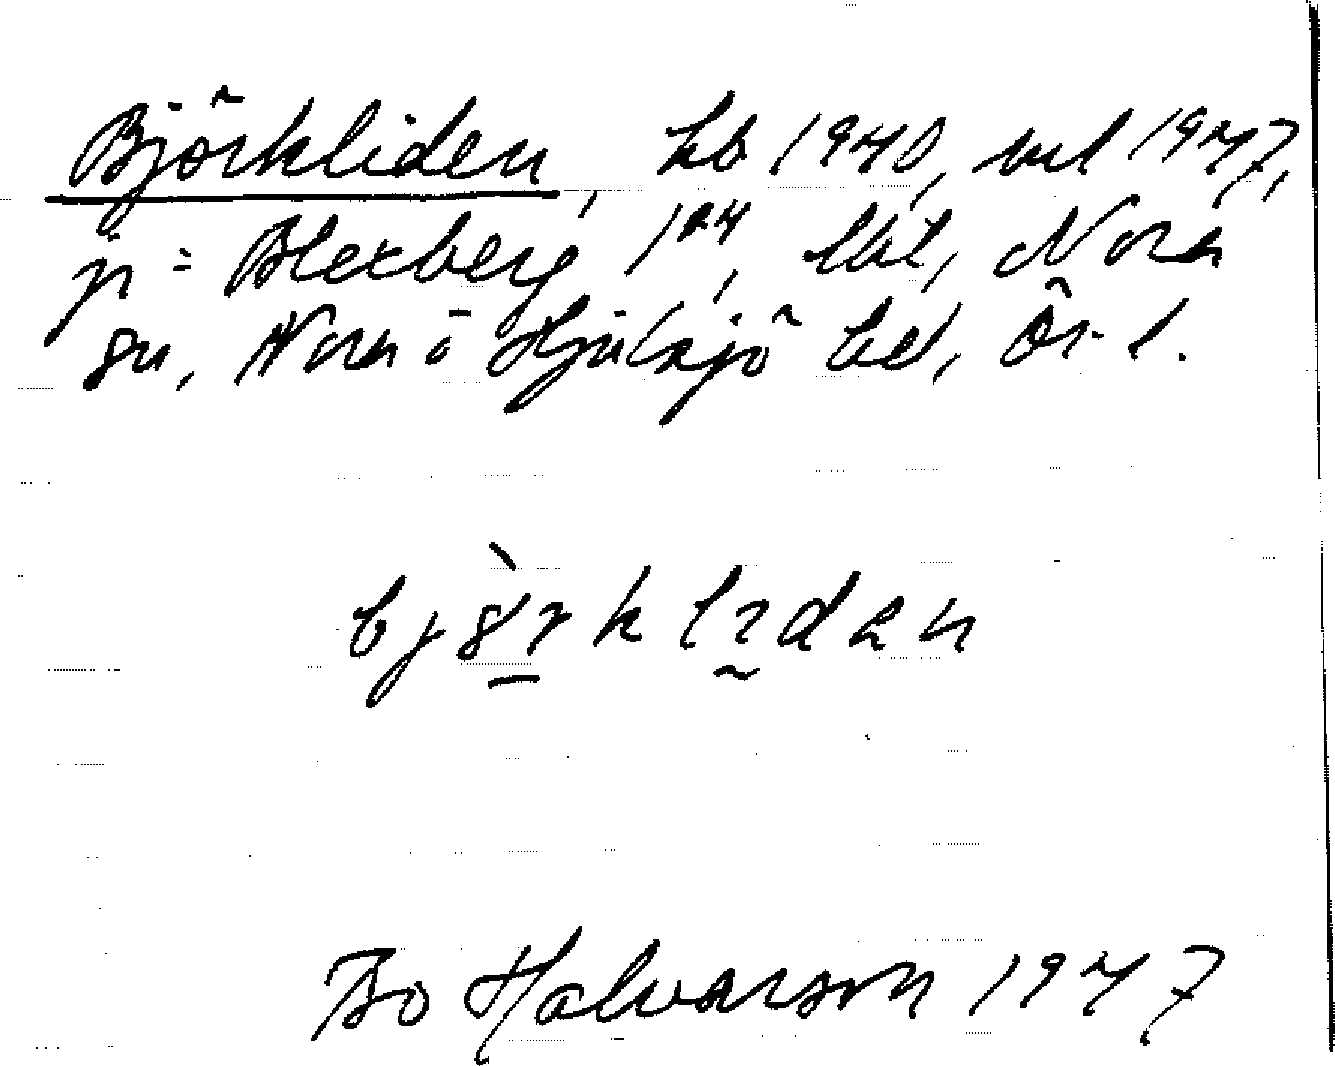 Björkliden, hb 1940, ml 1947,
p = Blexberg 1²⁴, lht, Nora
sn, Nora o Hjulsjö bd, Ör. l.
björkliden
Bo Halvarson 1947